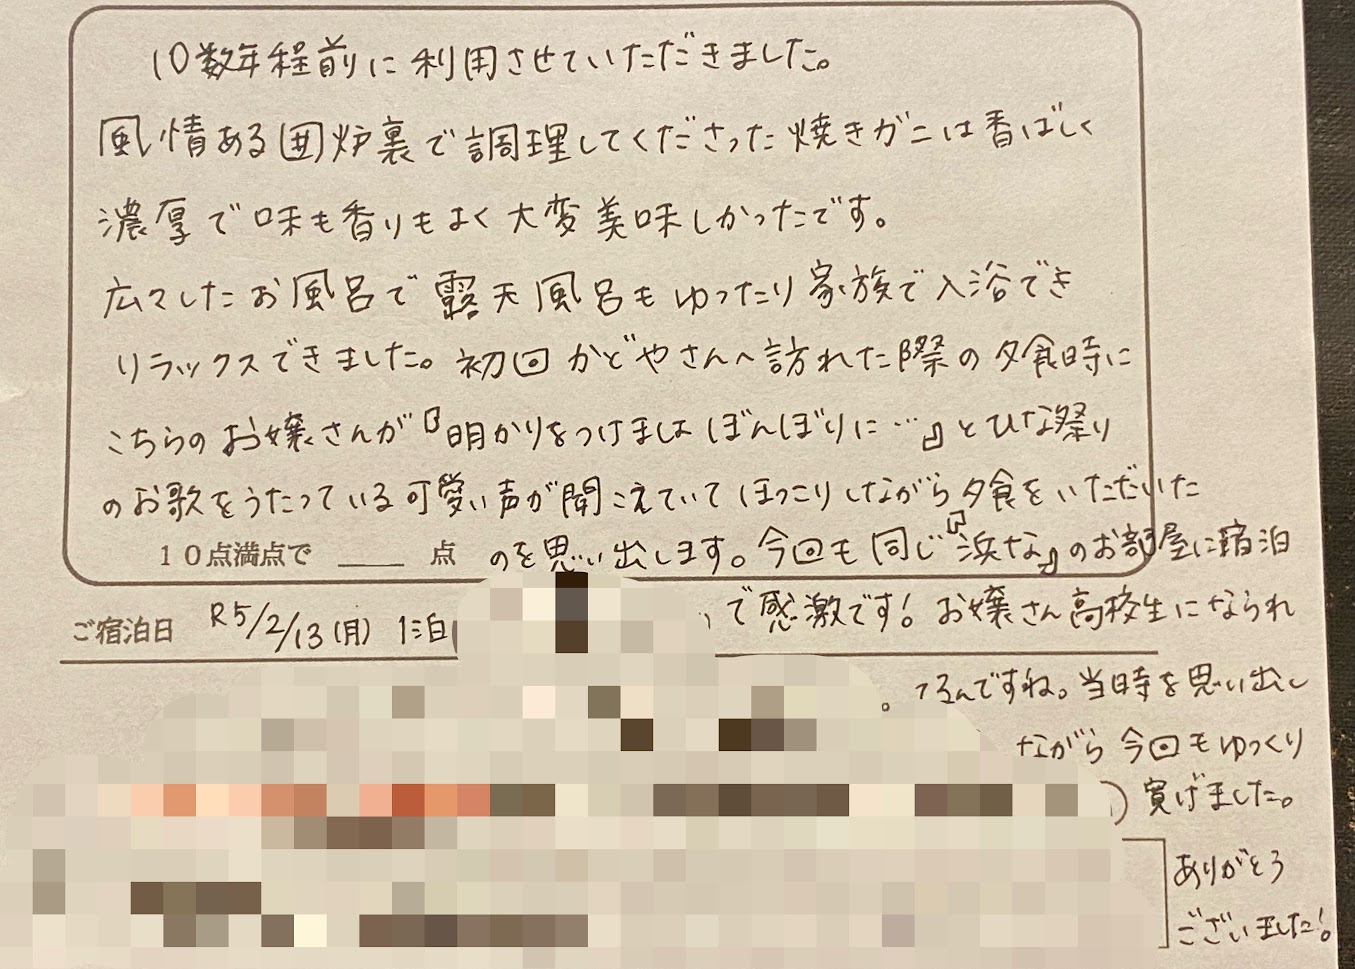 10数年程前に利用させていただきました。
風情ある囲炉裏で調理してくださった焼きガニは香ばしく
濃厚で味も香りもよく大変美味しかったです。
広々したお風呂で露天風呂もゆったり家族で入浴でき
リラックスできました。初回かどやさんへ訪れた際の夕食時に
こちらのお嬢さんが『明かりをつけましょぼんぼりに…』とひな祭り
のお歌をうたっている可愛い声が聞こえていてほっこりしながら夕食をいただいた
のを思い出します。今回も同じ『浜な』のお部屋に宿泊
10点満点で 点
で感激です!お嬢さん高校生になられ
ご宿泊日 R5/2/13(月) 1泊
てるんですね。当時を思い出し
ながら今回もゆっくり
寛げました。
ありがとう
ございました!